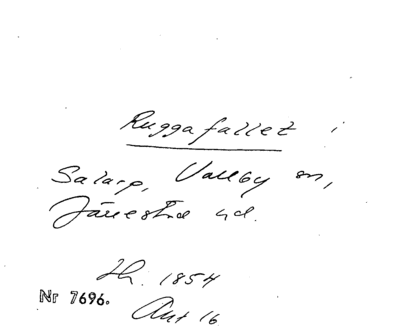 Ruggafallet i
Salarp, Vallby sn,
Järrestad hd.
Th. 1854
Nr 7696.
Ant 16